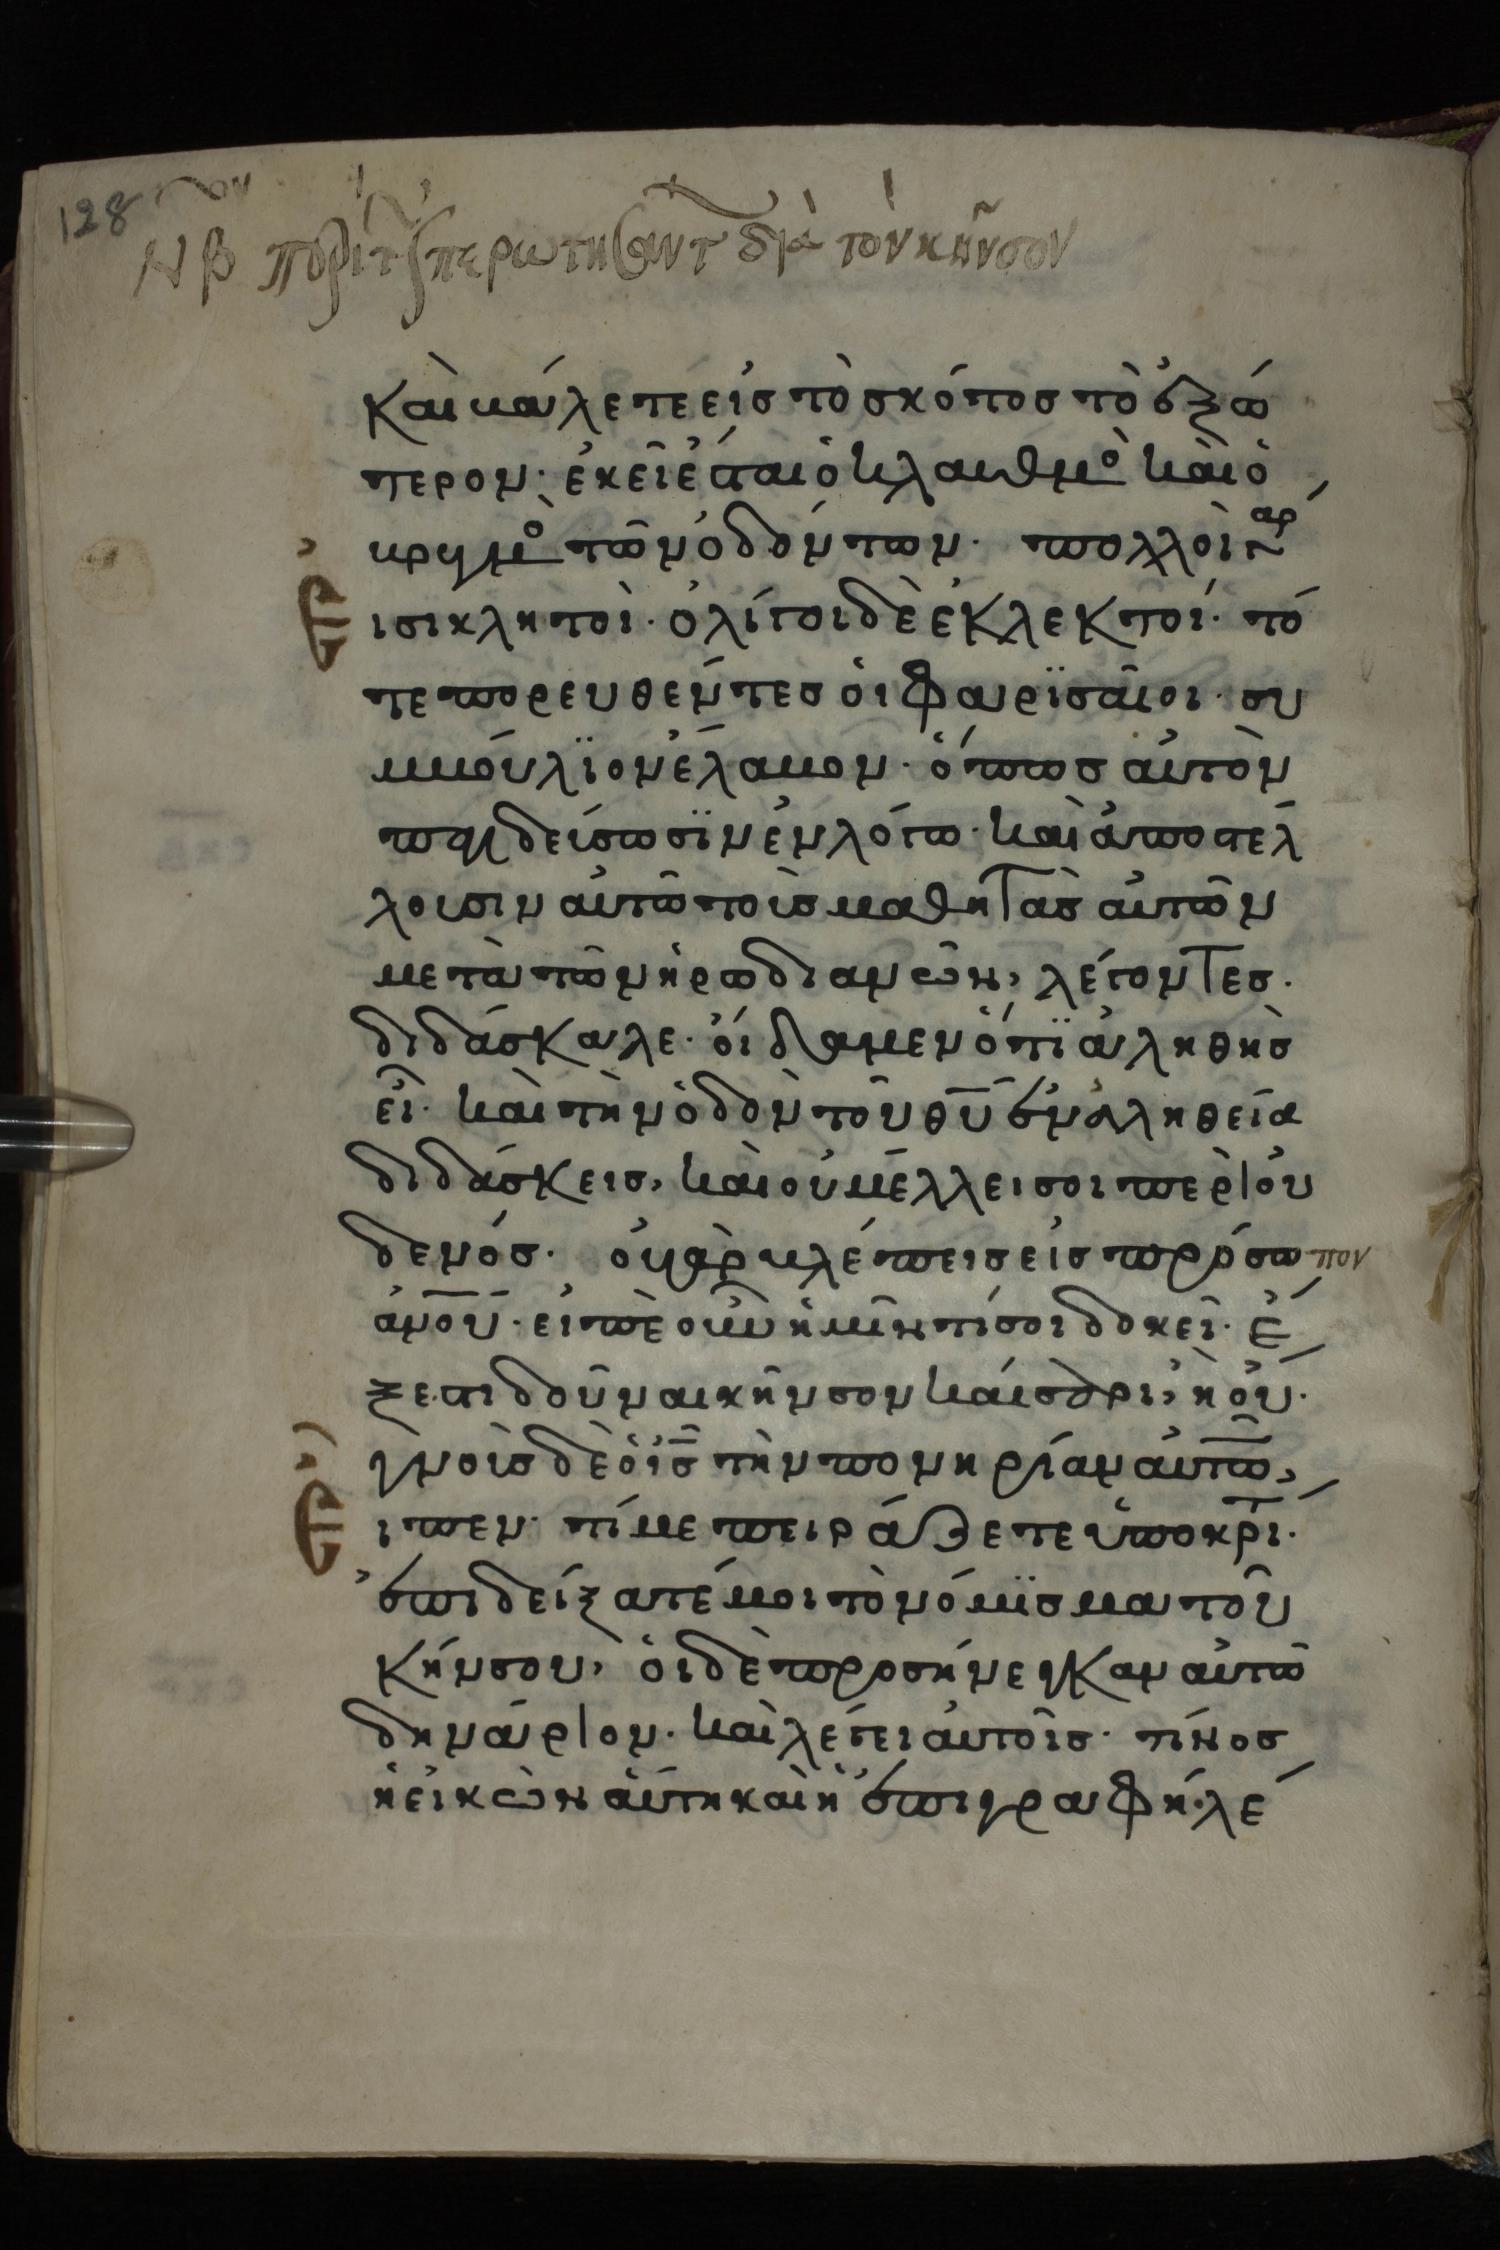 128
ΝΒ περὶ τῶν ἐπερωτησάντ διὰ τὸν κῆνσον
καὶ βάλετε εἰς τὸ σκότος τὸ ἐξώ
τερον· ἐκεῖ ἔσται ὁ κλαυθμὸ καὶ ὁ
βρυγμὸ τῶν ὀδόντων· πολλοὶ γαρ
εισι κλητοὶ· ὀλίγοι δὲ ἐκλεκτοί· τό
τε πορευθέντες οἱ φαρϊσαῖοι· συ
μβούλϊον ἔλαβον· ὅπως αὐτὸν
παγιδεύσωσϊν ἐν λόγω· καὶ ἀποστέλ
λουσιν αὐτῶ τοὺς μαθητὰς αὐτῶν
μετὰ τῶν ἡρωδιανῶν, λέγοντες·
διδάσκαλε· οἴδαμεν ὅτϊ ἀληθὴς
εἶ· καὶ τὴν ὁδὸν τοῦ θῡ ἐν ἀληθεία
διδάσκεις, καὶ οὐ μέλλει σοι περὶ οὐ
δενός· οὐ γὰρ βλέπεις εἰς πρόσωπον
ἀνοῡ· εἰπὲ οὖν ἡμῖν τί σοι δοκεῖ· ἔ
ξεστι δοῦναι κῆνσον καίσαρι, ἢ οὔ·
γνοὺς δὲ ὁ ἰς̄ τὴν πονηρίαν αὐτῶ,
ειπεν· τί με πειράζετε ὑποκρῑτί·
ἐπιδείξατέ μοι τὸ νόμϊσμα τοῦ
κήνσου, οἱ δὲ προσήνεγκαν αὐτῶ
δηνάριον· καὶ λέγει αὐτοῖς· τίνος
ἡ εἰκὼν αὕτη καὶ ἡ ἐπιγραφή· λέ